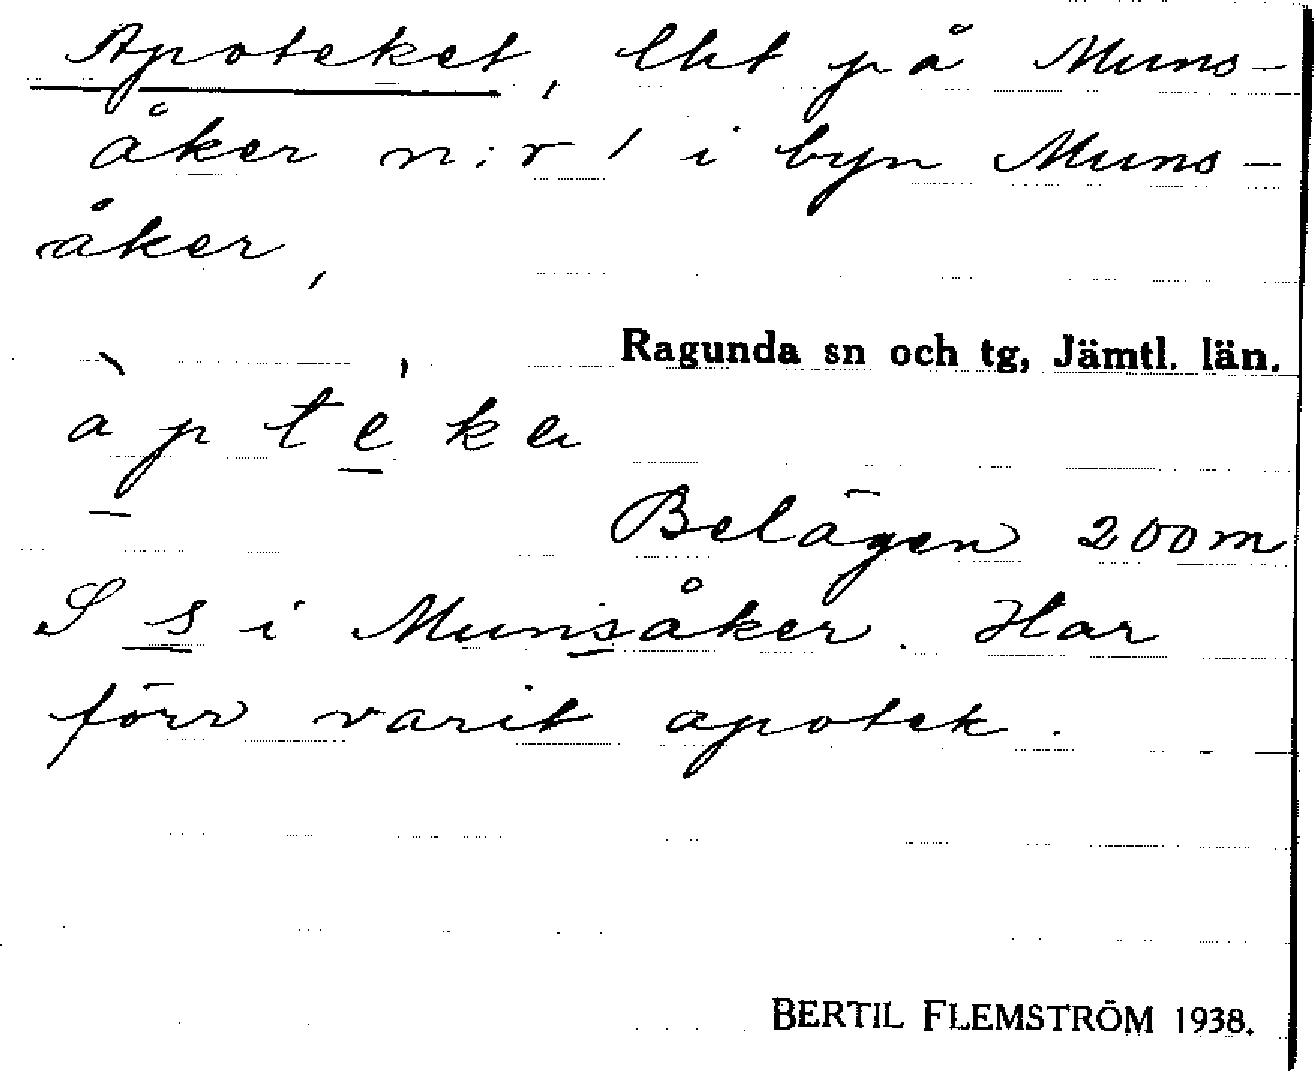 Apoteket, lht på Muns-
åker n:r 1 i byn Muns-
åker,
Ragunda sn och tg, Jämtl. län.
Belägen 200 m
S s i Munsåker. Har
förr varit apotek.
BERTIL FLEMSTRÖM 1938.